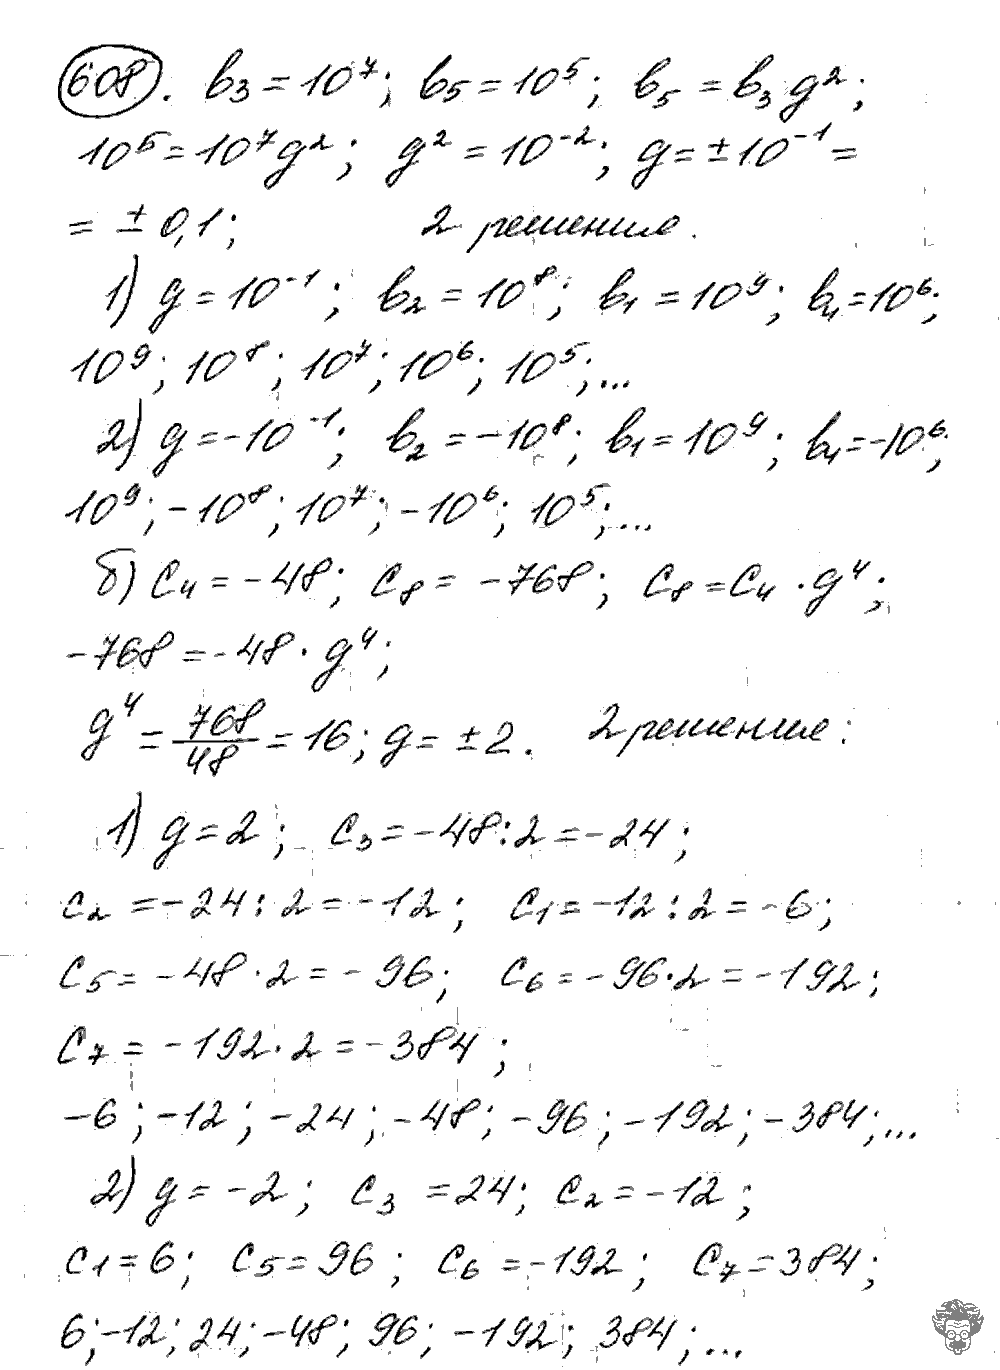 608. b₃ = 10⁷; b₅ = 10⁵; b₅ = b₃ g²;
10⁵ = 10⁷g²; g² = 10⁻²; g = ±10⁻¹ =
= ± 0,1; 2 решение.
1) g = 10⁻¹; b₂ = 10⁸; b₁ = 10⁹; b₄ = 10⁶;
10⁹; 10⁸; 10⁷; 10⁶; 10⁵; ...
2) g = -10⁻¹; b₂ = -10⁸; b₁ = 10⁹; b₄ = -10⁶;
10⁹; -10⁸; 10⁷; -10⁶; 10⁵; ...
б) c₄ = -48; c₈ = -768; c₈ = c₄ · g⁴;
-768 = -48 · g⁴;
g⁴ = 768/48 = 16; g = ±2. 2 решение:
1) g = 2; c₃ = -48:2 = -24;
c₂ = -24:2 = -12; c₁ = -12:2 = -6;
c₅ = -48·2 = -96; c₆ = -96·2 = -192;
c₇ = -192·2 = -384;
-6; -12; -24; -48; -96; -192; -384; ...
2) g = -2; c₃ = 24; c₂ = -12;
c₁ = 6; c₅ = 96; c₆ = -192; c₇ = 384;
6; -12; 24; -48; 96; -192; 384; ...